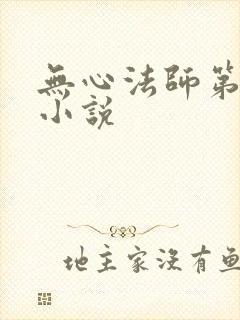 無心法師第
小說
地主家沒有魚